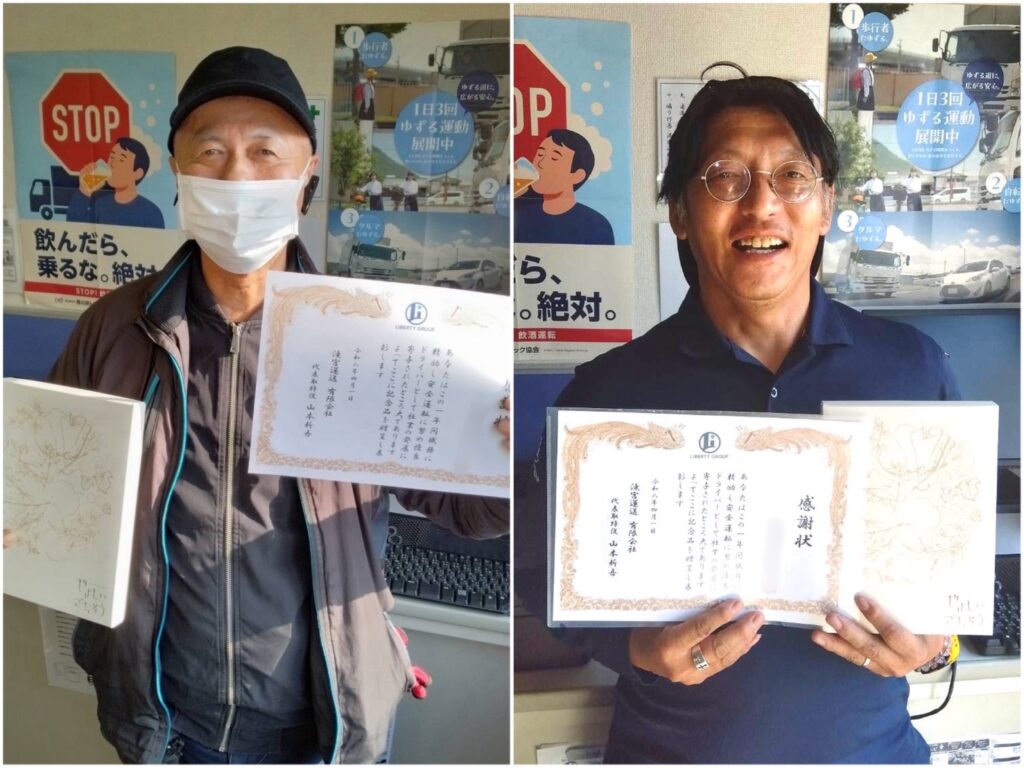 STOP
飲んだら、
乗るな。絶対
STOP!
1
歩行者
にゆずる。
ゆずる道に、
広がる安心。
1日3回
ゆずる運動
展開中
2
自転
3
クルマ
にゆずる。
LIBERTY GROUP
あなたはこの一年間職務に
精励し安全運転に努め優良
ドライバーとして社業の発展に
寄与されたところ大であります
よってここに記念品を贈呈し表
彰します
令和八年四月一日
滝宮運送 有限会社
代表取締役 山本新吾
やさしい
ごちそう
STOP
だら、
。絶対。
飲酒運転
ック協会
1
歩行者
にゆずる。
ゆずる道に、
広がる安心。
1日3回
ゆずる運動
展開中
2
自転
3
クルマ
にゆずる。
LIBERTY GROUP
感謝状
あなたはこの一年間職務
精励し安全運転に努め優良
ドライバーとして社業の発展に
寄与されたところ大であります
よってここに記念品を贈呈し表
彰します
令和八年四月一日
滝宮運送 有限会社
代表取締役 山本新吾
やさしい
ごちそう